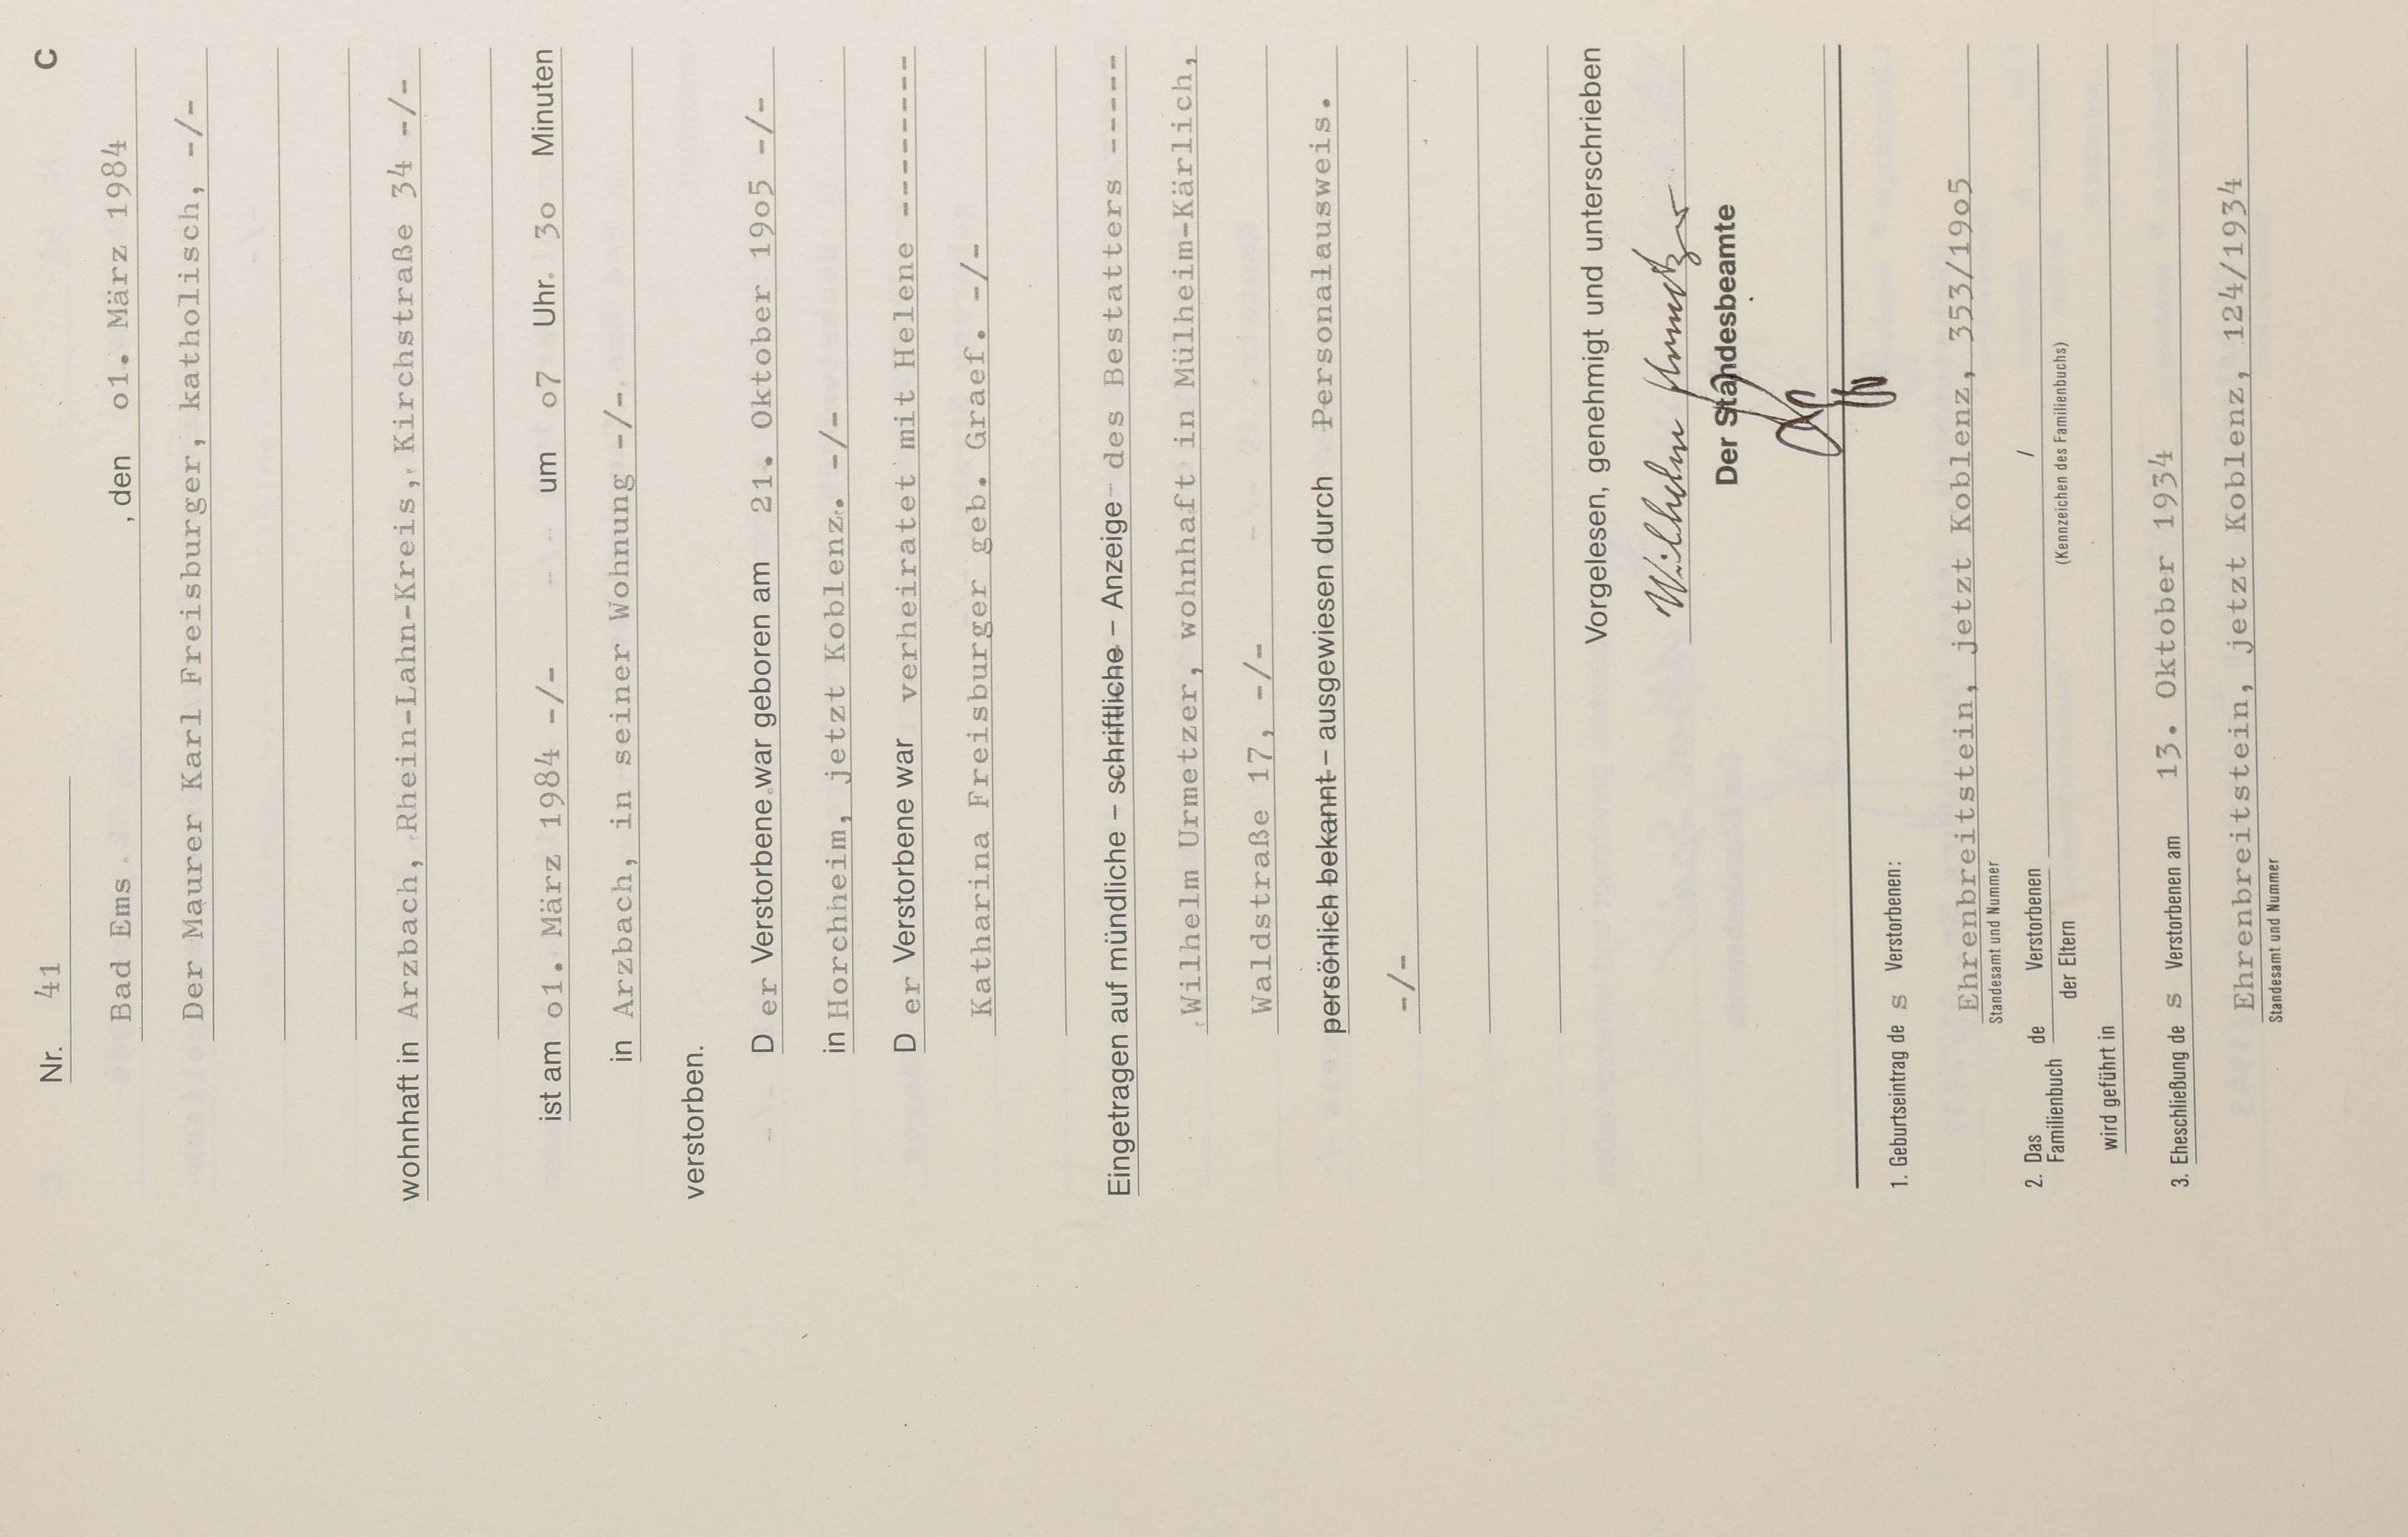 C
Nr. 41
Bad Ems , den o1. März 1984
Der Maurer Karl Freisburger, katholisch, -/-
wohnhaft in Arzbach, Rhein-Lahn-Kreis, Kirchstraße 34 -/-
ist am o1. März 1984 -/- um o7 Uhr 3o Minuten
in Arzbach, in seiner Wohnung -/-
verstorben.
D er Verstorbene war geboren am 21. Oktober 19o5 -/-
in Horchheim, jetzt Koblenz. -/-
D er Verstorbene war verheiratet mit Helene --------
Katharina Freisburger geb. Graef. -/-
Eingetragen auf mündliche – schriftliche – Anzeige des Bestatters -----
Wilhelm Urmetzer, wohnhaft in Mülheim-Kärlich,
Waldstraße 17, -/-
persönlich bekannt – ausgewiesen durch Personalausweis.
-/-
Vorgelesen, genehmigt und unterschrieben
Wilhelm Urmetzer
Der Standesbeamte
1. Geburtseintrag de s Verstorbenen:
Ehrenbreitstein, jetzt Koblenz, 353/19o5
Standesamt und Nummer
2. Das Familienbuch de Verstorbenen der Eltern /
(Kennzeichen des Familienbuchs)
wird geführt in
3. Eheschließung de s Verstorbenen am 13. Oktober 1934
Ehrenbreitstein, jetzt Koblenz, 124/1934
Standesamt und Nummer